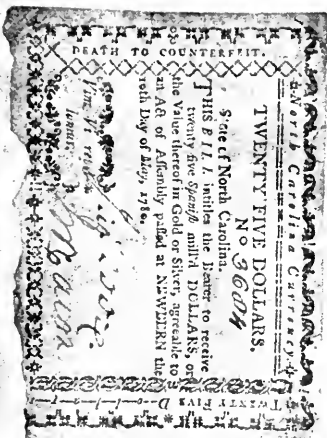 North Carolina Currency.
TWENTY FIVE DOLLARS.
No 3604
State of North Carolina.
THIS BILL intitles the Bearer to receive
twenty five Spanish mill'd DOLLARS, or
the Value thereof in Gold or Silver, agreeable to
an Act of Assembly passed at NEWBERN the
10th Day of May, 1780.
DEATH TO COUNTERFEIT.
TWENTY FIVE D-o-l-l-a-r-s